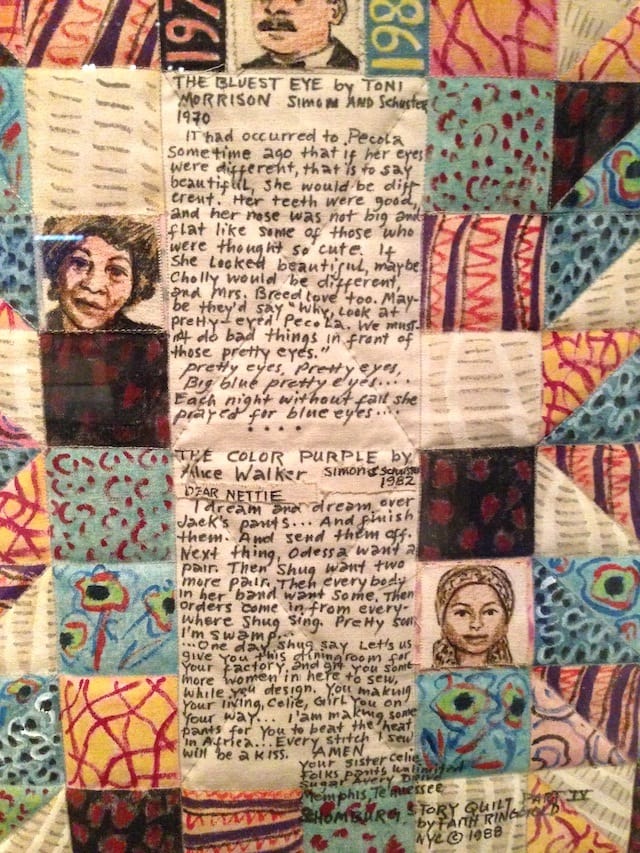 197
198
THE BLUEST EYE by TONI
MORRISON SIMON AND Schuster
1970
IT had occurred to Pecola
Sometime ago that if her eyes
were different, that is to say
beautiful, she would be diff
erent. Her teeth were good,
and her nose was not big and
flat like some of those who
were thought so cute. If
She Looked beautiful, maybe
Cholly would be different,
and Mrs. Breedlove too. May-
be they'd say "why, Look at
pretty-eyed Pecola. We must
not do bad things in front of
those pretty eyes."
pretty eyes, Pretty eyes,
Big blue pretty eyes....
Each night without fail she
prayed for blue eyes....
....
THE COLOR PURPLE by
Alice Walker SIMON & Schuster
1982
DEAR NETTIE
I dream and dream over
Jack's pants... And finish
them. And send them off.
Next thing, Odessa want a
pair. Then Shug want two
more pair. Then everybody
in her band want some. Then
orders come in from every-
where Shug Sing. Pretty soon
I'm swamp...
...One day Shug say Let's us
give you this diningroom for
you factory, and git you some
more women in here to sew,
while you design. You making
your living, Celie, Girl you on
your way... I'am making some
pants for you to beat the heat
in Africa... Every stitch I sew
will be a kiss. AMEN
Your Sister Celie
Folks pants unlimited
Sugar Avery Drive
Memphis, Tennessee
SCHOMBURG STORY QUILT PART IV
by FAITH RINGGOLD
NYC © 1988